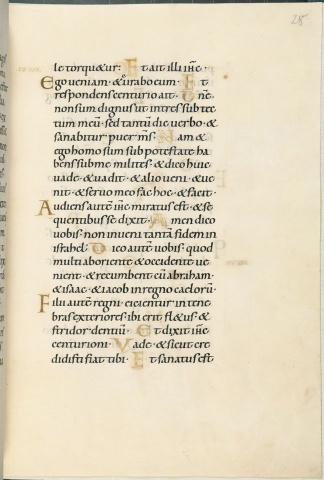 28
le torqueur: Et ait illi ihc̄.
Ego veniam. & curabo eum. Et
respondens centurio ait. Dñe
non sum dignus ut intres sub tec
tum meū. sed tantū dic verbo. &
sanabitur puer ms̄. Nam &
ego homo sum sub potestate ha
bens sub me milites. & dico huic
vade. & vadit. & alio veni. & ve
nit. & servo meo fac hoc. & facit.
Audiens autē ihc̄ miratus est. & se
quentibus se dixit. Amen dico
vobis. non inveni tantā fidem in
israhel. Dico autē vobis. quod
multi ab oriente & occidente ve
nient. & recumbent cū abraham.
& isaac. & iacob in regno caelorū.
Filii autē regni. eicientur in tene
bras exteriores. ibi erit fl&us. &
stridor dentiū. Et dixit ihc̄
centurioni. Vade. & sicut cre
didisti fiat tibi. Et sanatus est